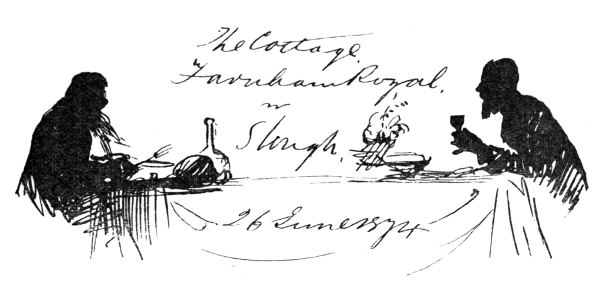 The Cottage,
Farnham Royal,
nr
Slough,
26 June 1874